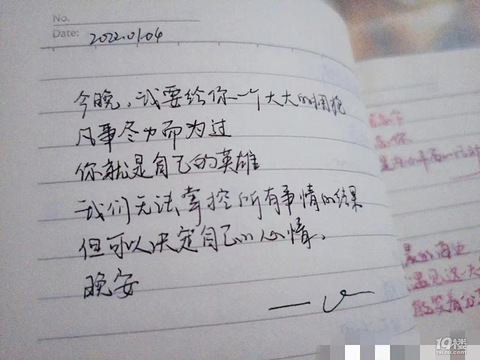 No.
Date: 2022.01.04
今晚,我要给你一个大大的拥抱
凡事尽力而为过
你就是自己的英雄
我们无法掌控所有事情的结果
但可以决定自己的心情。
晚安
19楼